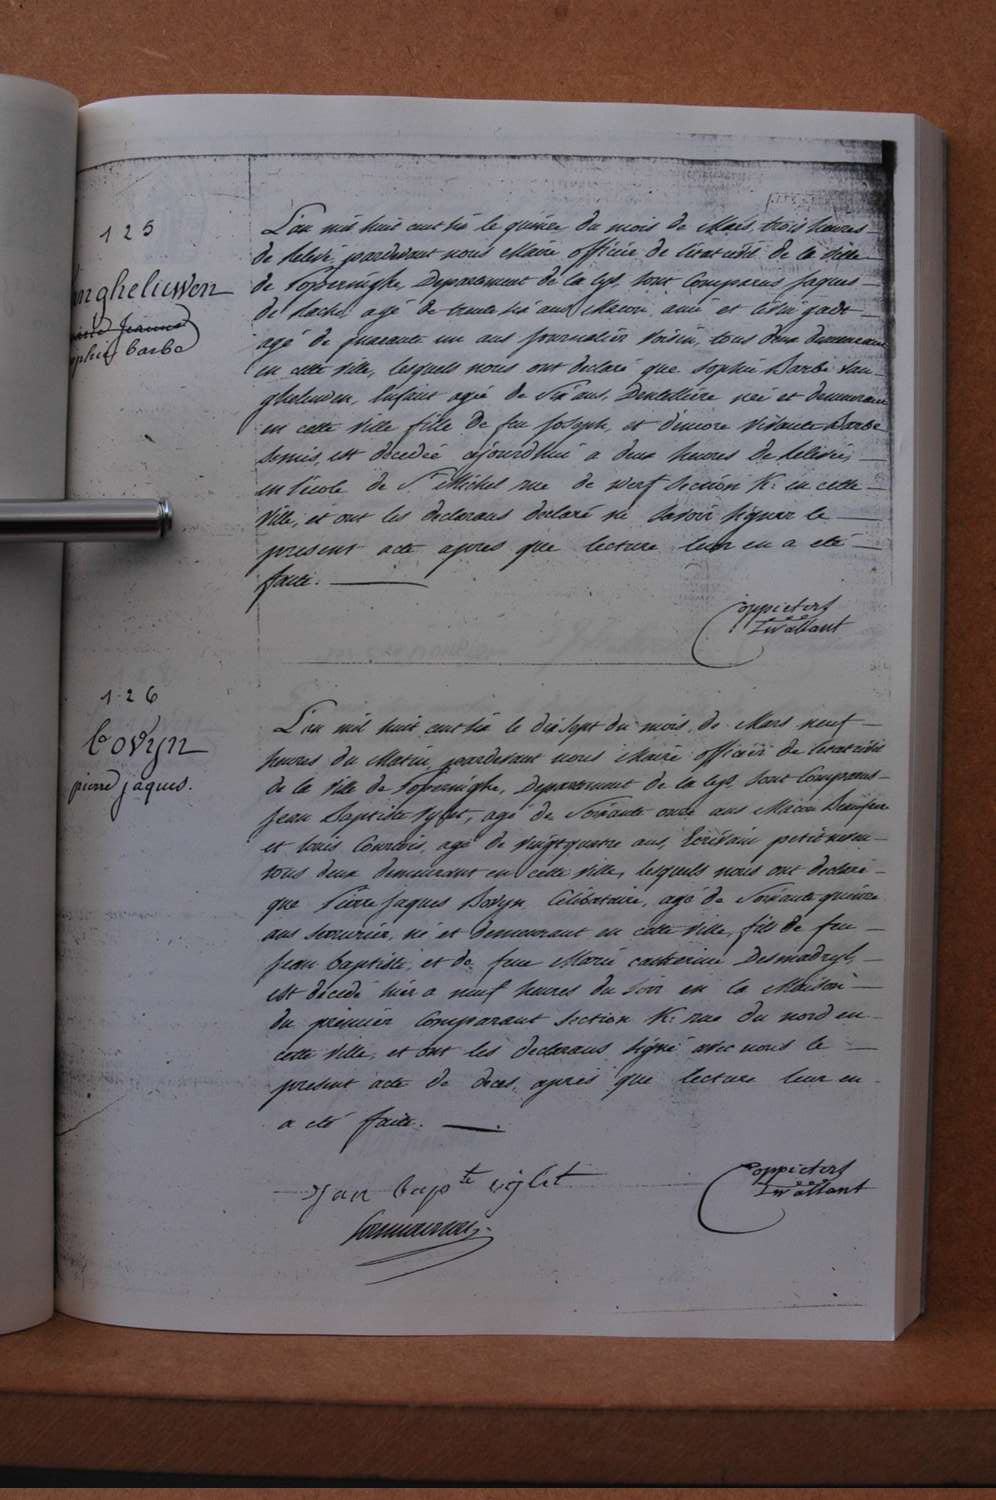 125
angheluwen
marie Jeanne
sophie barbe
L'an mil huit cent six le quinze du mois de Mars trois heures
de relevé, pardevant nous Maire officier de l'état civil de la ville
de Poperinghe, Departement de la Lys, sont Comparus Jaques
de Rache, agé de trente six ans, Macon, ami et
agé de quarante un ans journalier voisin, tous deux demeurant
en cette ville, lesquels nous ont declaré que Sophie Barbe Van-
gheluwen, Enfant agée de Six ans, Dentelliere née et demeurant
en cette ville fille de feu Joseph, et d'encore vivante Barbe
Somis, est decedée ajourd'hui a deux heures de relevée,
en l'école de St Michel rue de Section K: en cette
ville, et ont les declarans declaré ne savoir signer le
present acte apres que lecture leur en a eté
faite.
Coppieters
T'Wallant
126
bovyn
pierre jaques.
L'an mil huit cent six le dix sept du mois de Mars neuf
heures du Matin, pardevant nous Maire officier de l'état civil
de la ville de Poperinghe, Departement de la Lys, sont Comparus
Jean Baptiste agé de Soixante onze ans Macon
et Louis agé de vingt quatre ans, Ecrivain
tous deux demeurant en cette ville, lesquels nous ont declaré
que Pierre Jaques Bovyn Celibataire, agé de Soixante quinze
ans serrurier, né et demeurant en cette ville, fils de feu
Jean baptiste, et de feue Marie catherine Desmadryl,
est decedé hier a neuf heures du soir en la Maison
du premier Comparant Section K: rue du nord en
cette ville, et ont les declarans signé avec nous le
present acte de deces, apres que lecture leur en
a eté faite.
Jan bapte
Coppieters
T'Wallant